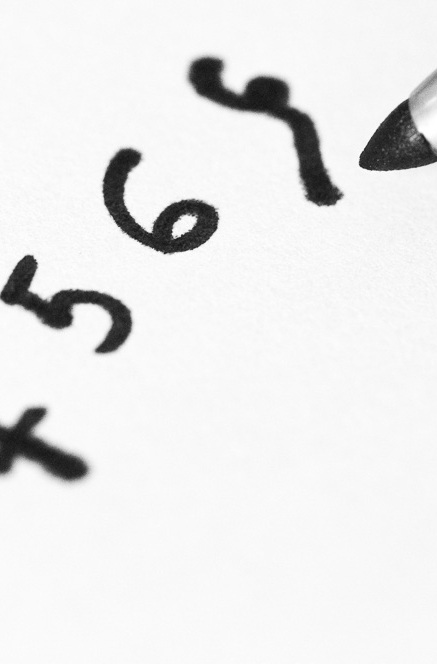 4 5 6 7